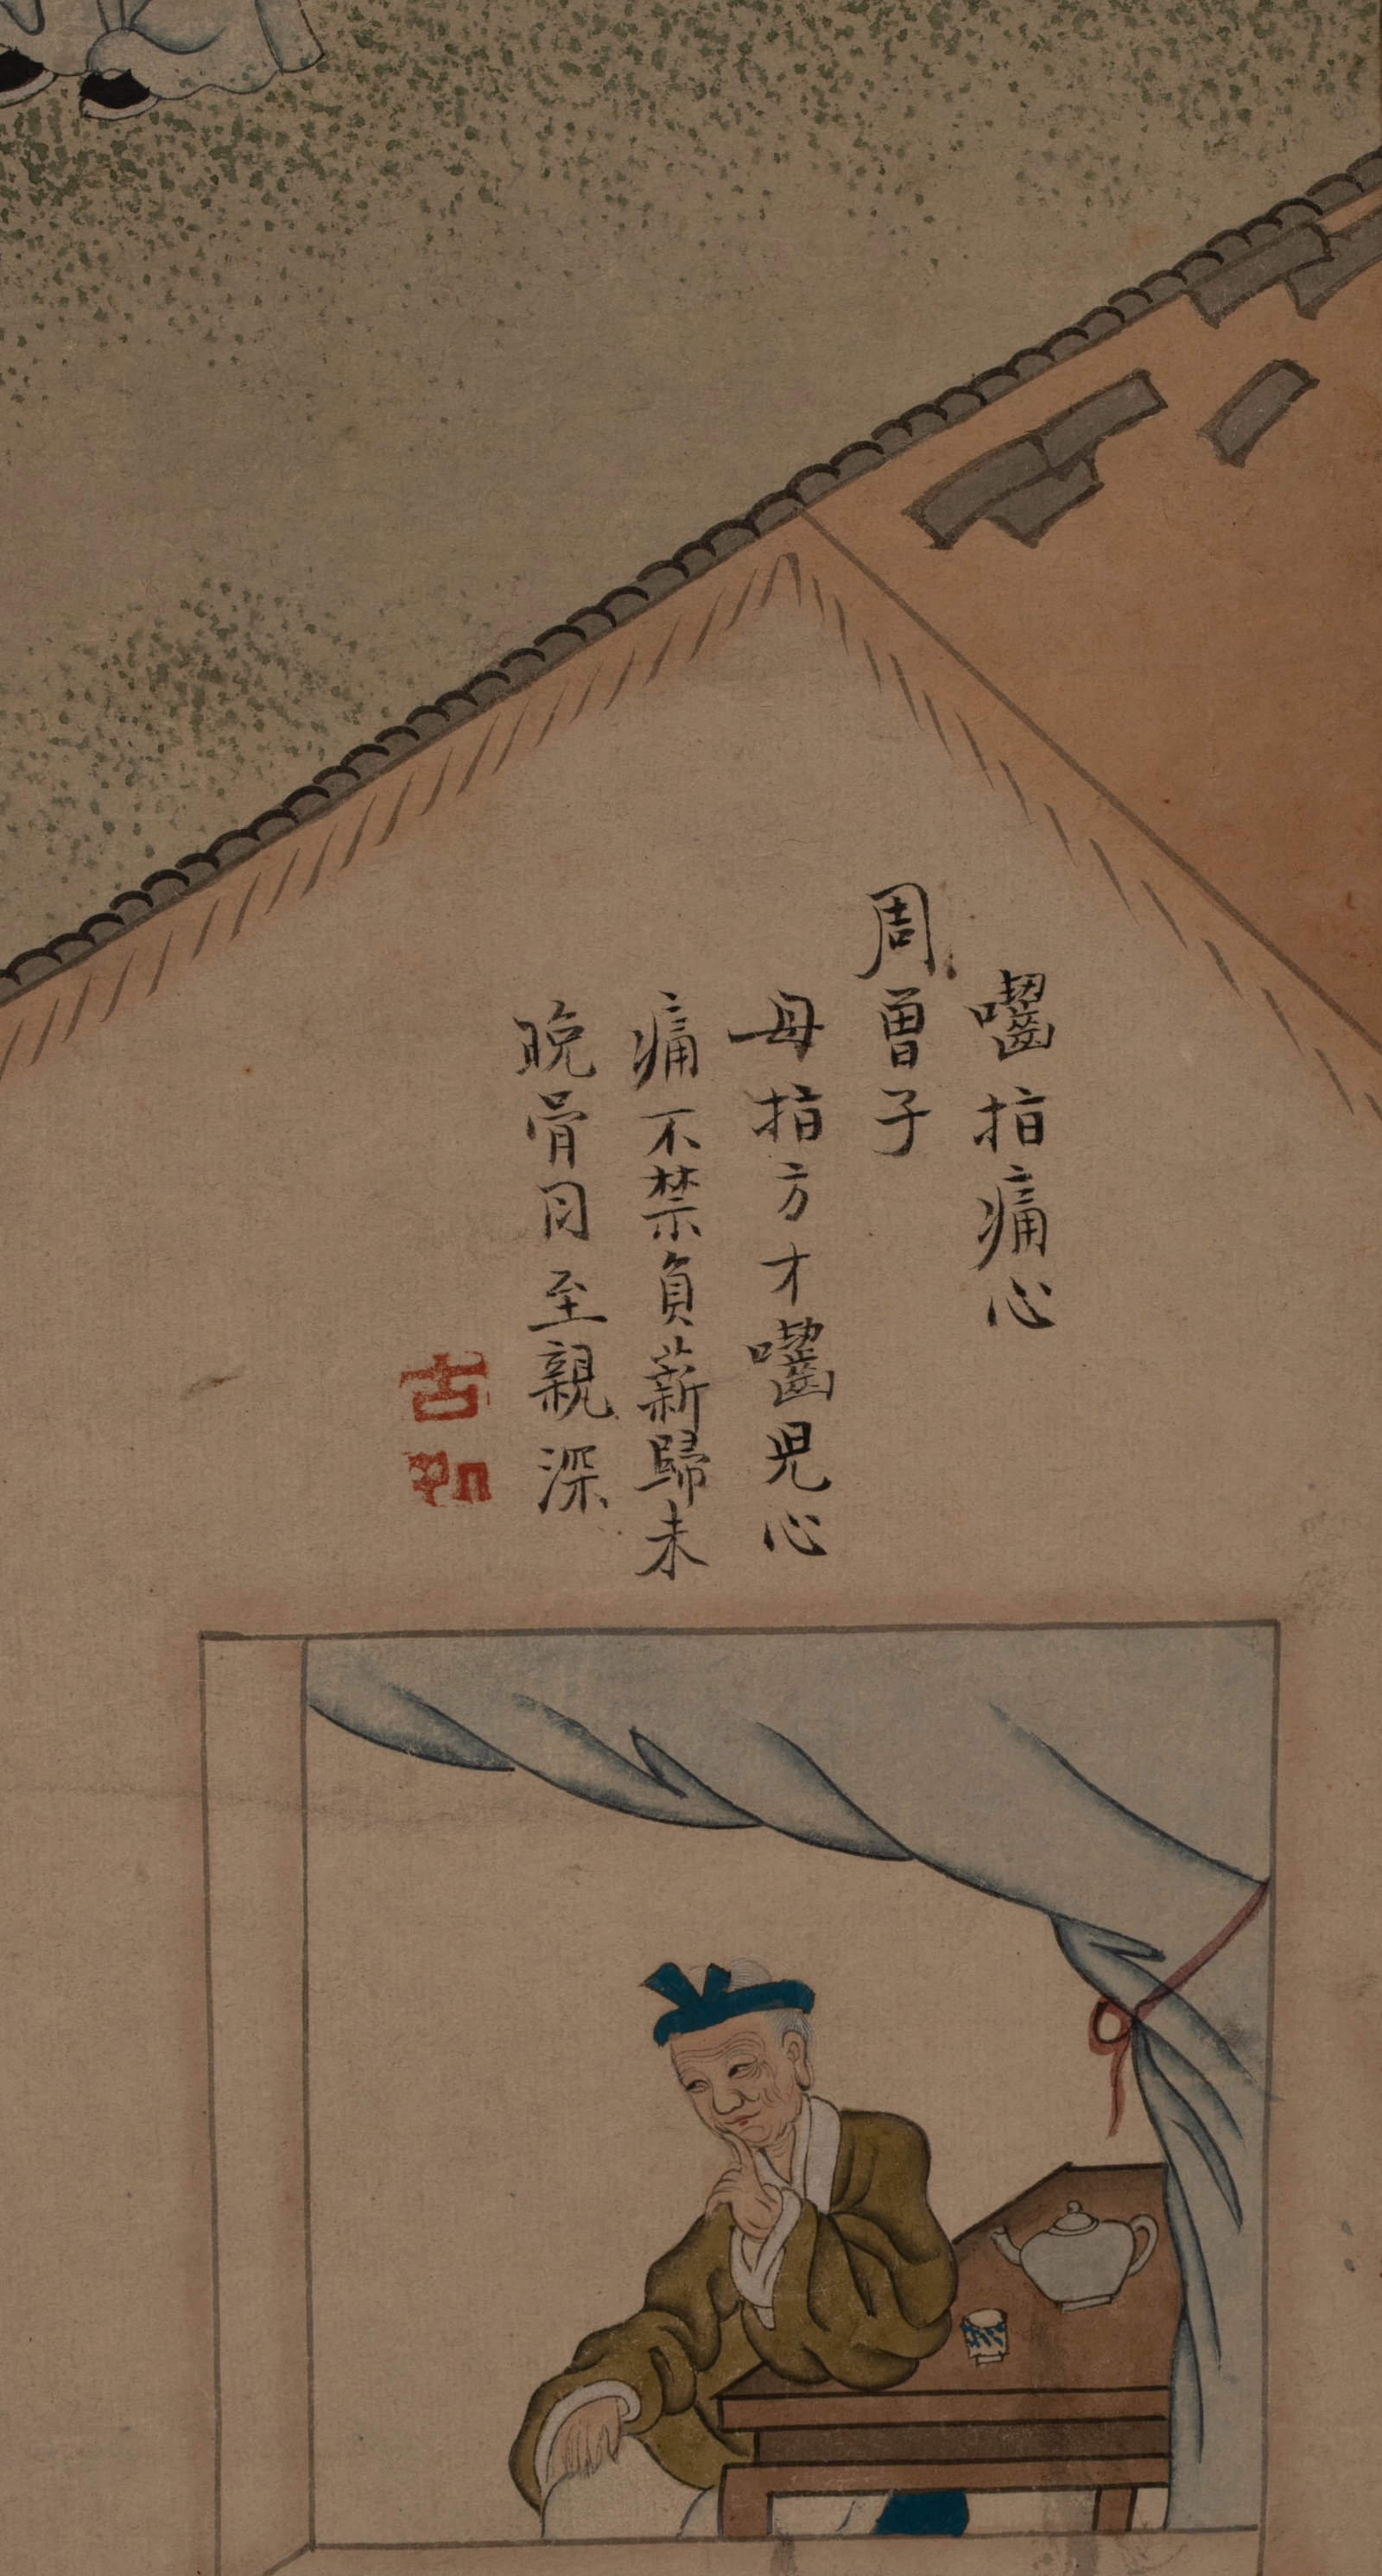 嚙指痛心
周曾子
母指方才嚙兒心
痛不禁負薪歸未
晚骨肉至親深
古